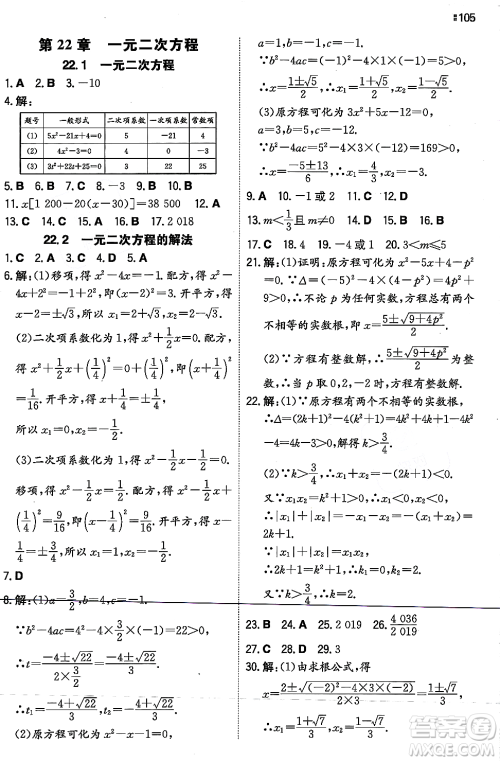 105
第 22 章 一元二次方程
22.1 一元二次方程
1. A 2. B 3. -10
4. 解:
题号 一般形式 二次项系数 一次项系数 常数项
(1) 5x²-21x+4=0 5 -21 4
(2) 4x²-3=0 4 0 -3
(3) 3x²+22x+25=0 3 22 25
5. B 6. B 7. B 8. C 9. -3 10. B
11. x[1 200-20(x-30)]=38 500 12. A
13. C 14. C 15. A 16. B 17. 2 018
22.2 一元二次方程的解法
1. C 2. A 3. C 4. D 5. A
6. 解:(1)移项,得 x²-4x=-1. 配方,得 x²-
4x+2²=-1+2²,即(x-2)²=3. 开平方,
得 x-2=±√3,所以 x₁=2+√3,x₂=2-√3.
(2)二次项系数化为 1,得 x²+1/2x=0. 配方,
得 x²+1/2x+(1/4)²=(1/4)²,即(x+1/4)²
=1/16. 开平方,得 x+1/4=±1/4,
所以 x₁=0,x₂=-1/2.
(3)二次项系数化为 1,得 x²+3/2x-1/2=0.
移项,得 x²+3/2x=1/2. 配方,得 x²+3/2x+
(3/4)²=9/16+1/2,即(x+3/4)²=17/16. 开平方,得 x+
7. D
8. 解:(1)a=3/2,b=4,c=-1.
∵b²-4ac=4²-4×3/2×(-1)=22>0,
(2)原方程可化为 x²-x-1=0.
a=1,b=-1,c=-1.
∵b²-4ac=(-1)²-4×1×(-1)=5>0,
∴x=(1±√5)/2. ∴x₁=(1+√5)/2,x₂=(1-√5)/2.
(3)原方程可化为 3x²+5x-12=0.
a=3,b=5,c=-12.
∵b²-4ac=5²-4×3×(-12)=169>0,
9. A 10. A 11. 1或 2 12. A
13. m<1/3且 m≠0 14. D 15. D 16. B
17. C 18. 4 19. -4或 1 20. 3<m≤5
21. 解:(1)证明:原方程可化为 x²-5x+4-p²
=0. ∵Δ=(-5)²-4×(4-p²)=4p²+
9>0,∴不论 p 为任何实数,方程总有两个
不相等的实数根.
(2)∵原方程的根为 x=(5±√(9+4p²))/2,
又∵方程有整数解,∴(5±√(9+4p²))/2为整数
22. 解:(1)∵原方程有两个不相等的实数根,
∴Δ=(2k+1)²-4(k²+1)=4k²+4k+1-
4k²-4=4k-3>0,解得 k>3/4.
(2)∵k>3/4,∴x₁+x₂=-(2k+1)<0.
又∵x₁x₂=k²+1>0,∴x₁<0,x₂<0.
∴|x₁|+|x₂|=-x₁-x₂=-(x₁+x₂)=2k+1.
∵|x₁|+|x₂|=x₁x₂,
∴2k+1=k²+1,∴k₁=0,k₂=2.
又∵k>3/4,∴k=2.
23. B 24. A 25. 2 019 26. 4 036/2 019
27. C 28. D 29. A
30. 解:(1)由求根公式,得